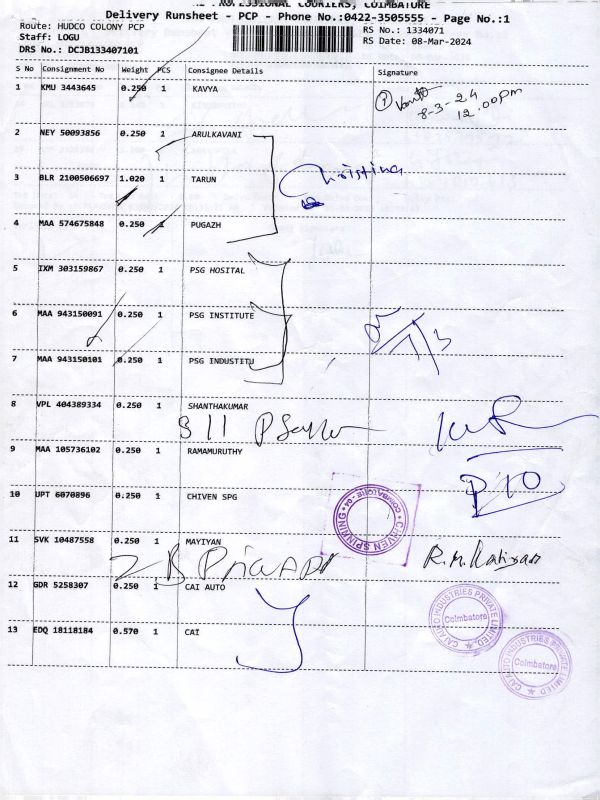 PROFESSIONAL COURIERS, COIMBATORE
Delivery Runsheet - PCP - Phone No.:0422-3505555 - Page No.:1
Route: HUDCO COLONY PCP
RS No.: 1334071
Staff: LOGU
RS Date: 08-Mar-2024
DRS No.: DCJB133407101
S No Consignment No Weight PCS Consignee Details Signature
1 KMU 3443645 0.250 1 KAVYA
8-3-24
12.00pm
2 NEY 50093856 0.250 1 ARULKAVANI
3 BLR 2100506697 1.020 1 TARUN
Christina
4 MAA 574675848 0.250 1 PUGAZH
5 IXM 303159867 0.250 1 PSG HOSITAL
6 MAA 943150091 0.250 1 PSG INSTITUTE
7 MAA 943150101 0.250 1 PSG INDUSTITU
8 VPL 404389334 0.250 1 SHANTHAKUMAR
9 MAA 105736102 0.250 1 RAMAMURUTHY
10 UPT 6070896 0.250 1 CHIVEN SPG
CHIVEN SPINNING COIMBATORE
11 SVK 10487558 0.250 1 MAYIYAN
12 GDR 5258307 0.250 1 CAI AUTO
CAI AUTO INDUSTRIES PRIVATE LIMITED Coimbatore
13 EDQ 18118184 0.570 1 CAI
CAI AUTO INDUSTRIES PRIVATE LIMITED Coimbatore